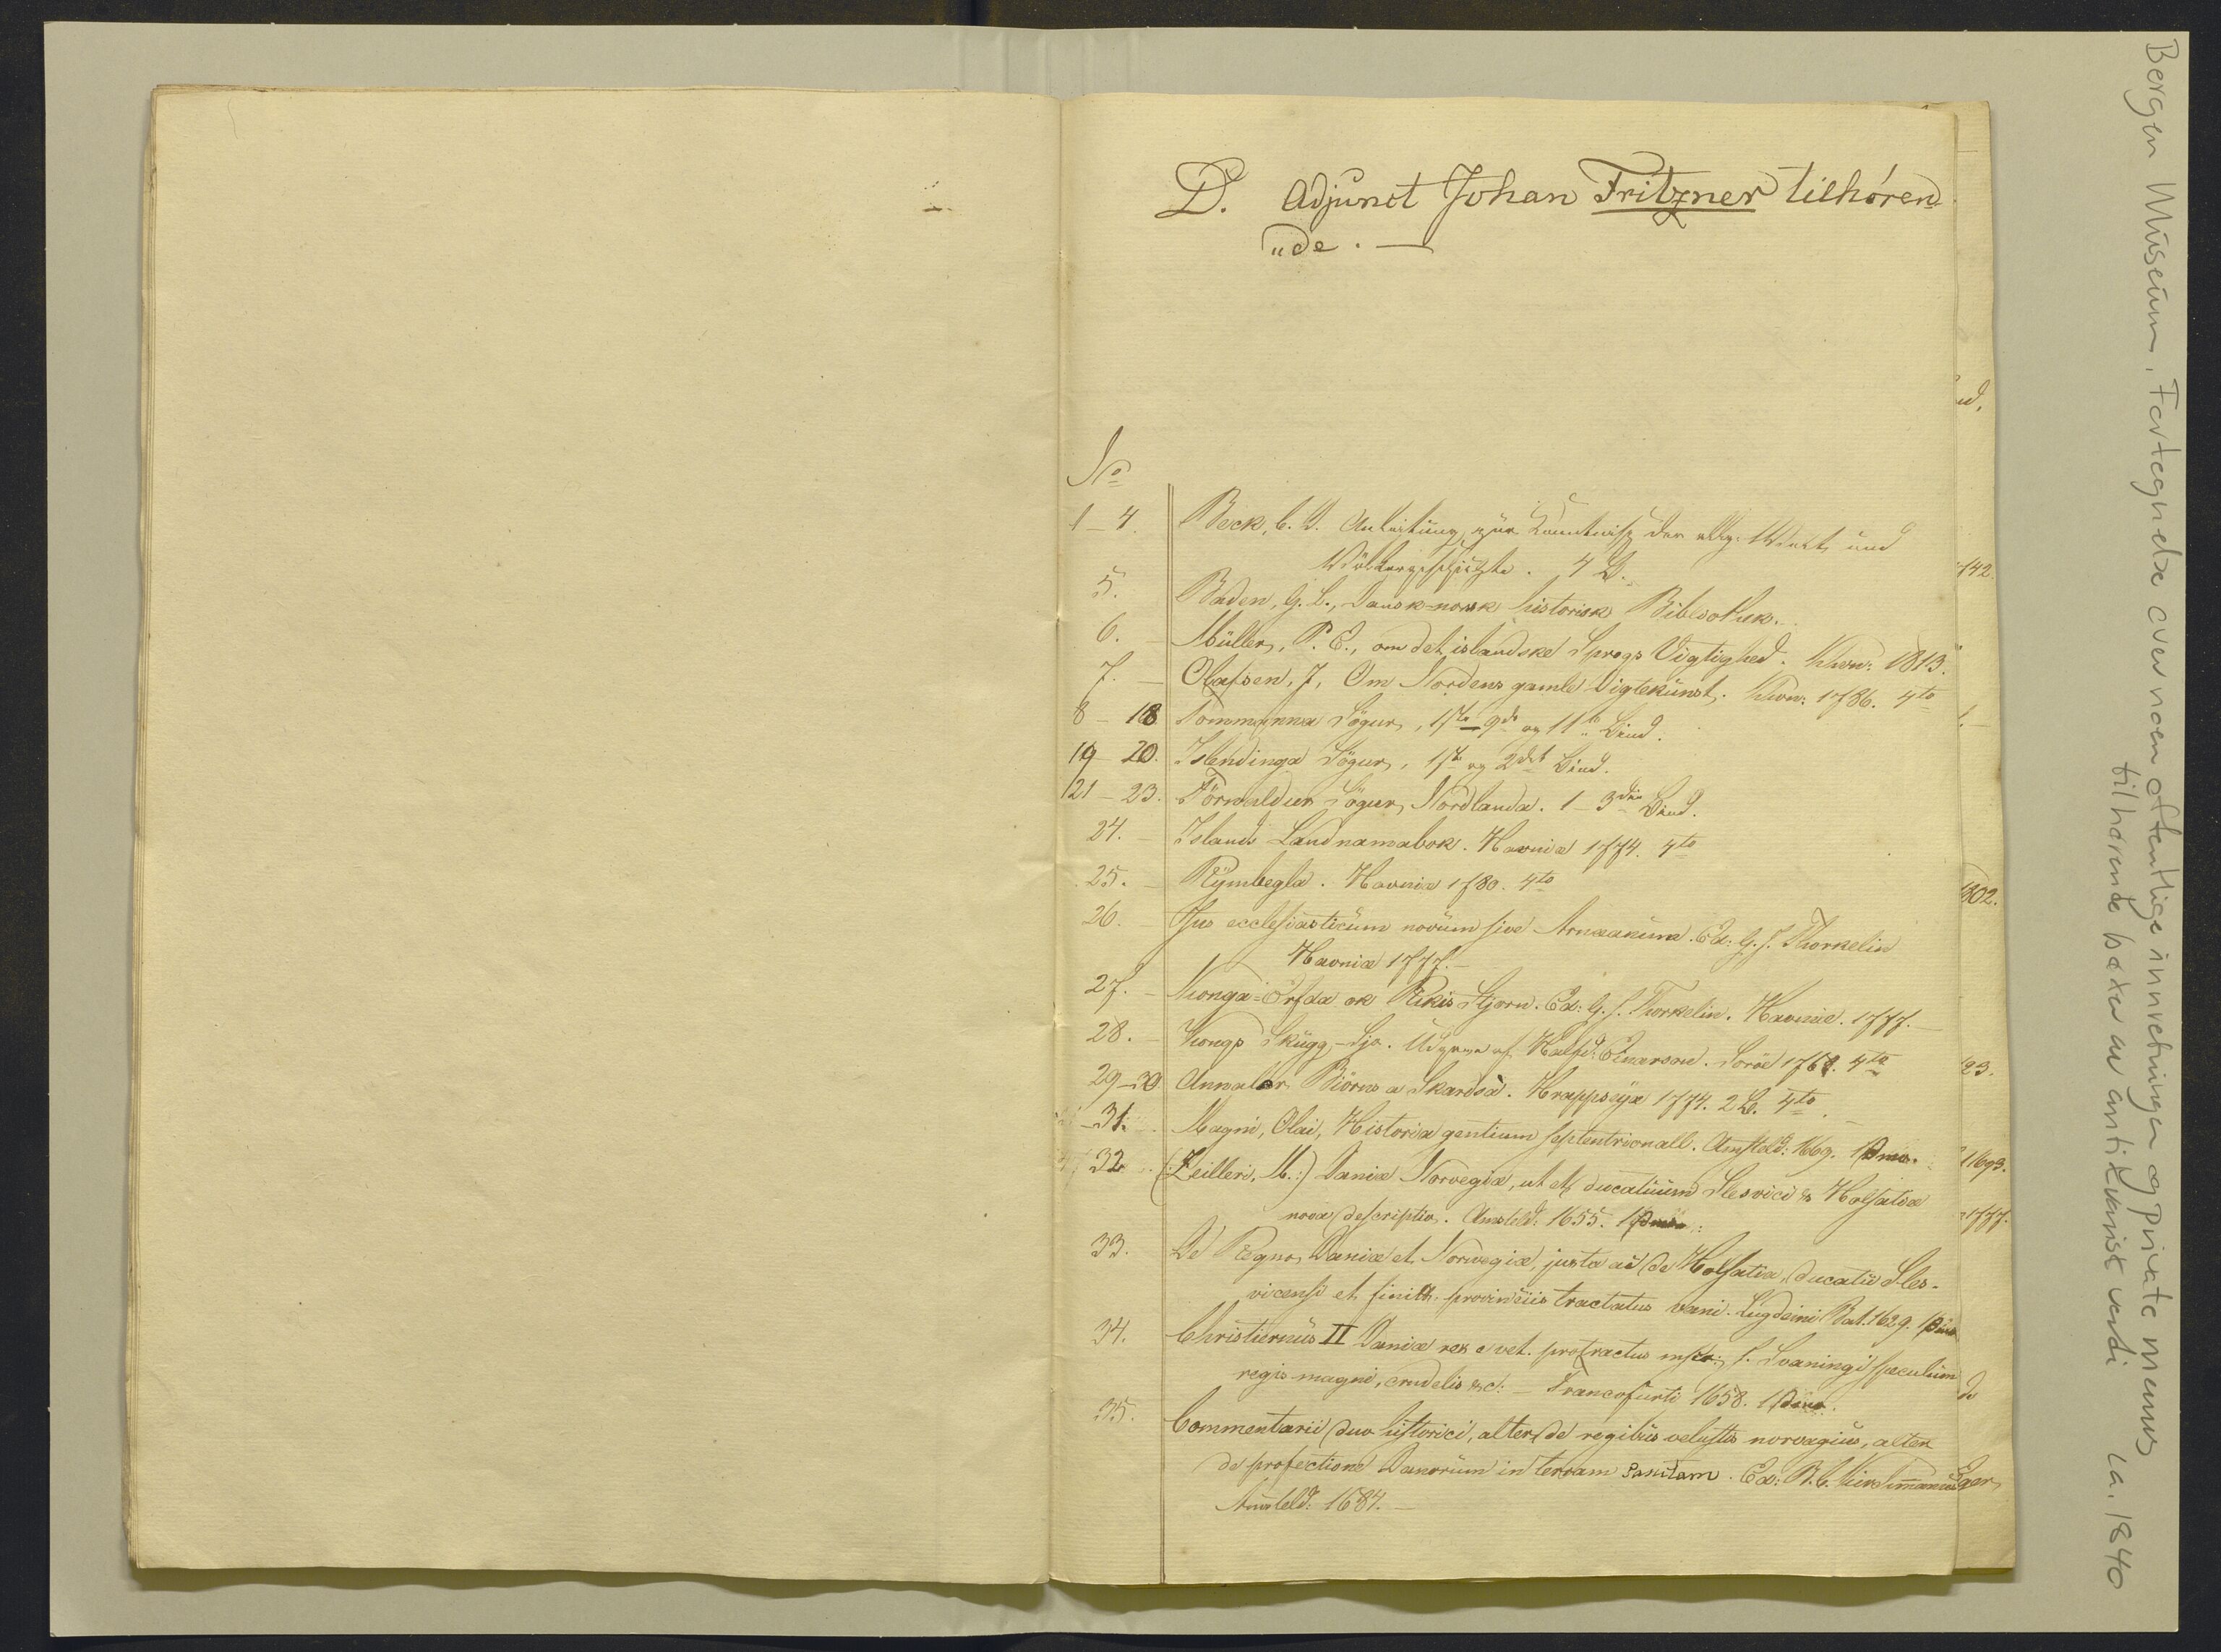 D. Adjunct Johan Fritzner tilhøren
"de. —
No
1–4. Beck, C. D. Anleitung zur Kenntniss der allg. Welt und
Völkergeschichte. 4 B.
5. Baden, G. L., Dansk-norsk historisk Bibliothek.
6. – Müller, P. E., om det islandske Sprogs Vigtighed. Khvn: 1813.
7. – Olafsen, J, Om Nordens gamle Digtekunst. Khvn: 1786. 4to
8–18 Fornmanna Sögur, 1ste–9de og 11te Bind.
19–20. Islendinga Sögur, 1ste og 2det Bind.
21–23. Fornaldur Sögur Nordlanda. 1–3die Bind.
24. – Islands Landnamabok. Havniæ 1774. 4to
25. – Rymbegla. Havniæ 1780. 4to
26. – Jus ecclesiasticum novum sive Arnæanum. Ed: G. J. Thorkelin
Havniæ 1777. –
27. – Konga-Erfda ok Rikis Stjorn. Ed: G. J. Thorkelin. Havniæ. 1777. –
28. – Kongs Skugg-Sjo. Udgiven af Halfd: Einarson. Soröe 1768. 4to
29–30 Annaler Biörns a Skardsà. Hrappseya 1774. 2 B. 4to
31. Magni, Olai, Historia gentium septentrionall. Amsteld: 1669. 12mo.
32 (Zeilleri, M.:) Daniæ Norvegiæ, ut et ducatuum Slesvici & Holsatiæ
nova descriptio. Amsteld: 1655. 12mo.
33. De Regno Daniæ et Norwegiæ, juxta ac de Holsatia, ducatu Sles-
vicensi et finitt. provinciis tractatus varii. Lugduni Bat. 1629. 12mo
34. Christiernus II Daniæ rex e vet. protractus mscr: s. Svaningi speculum
regis magni, crudelis &c: – Francofurti 1658. 12mo.
35. Commentarii duo historici, alter de regibus vetustis norvagicis, alter
de profectione Danorum in terram Sanctam. Ed: B. C. Kirchmannus
Amsteld: 1684. –
ud.
142.
1802.
23.
1693.
1777.
de
ger
Bergen Museum, Fortegnelse over noen offentlige innretninger og private menns
tilhørende bøker av antikvarisk verdi ca. 1840